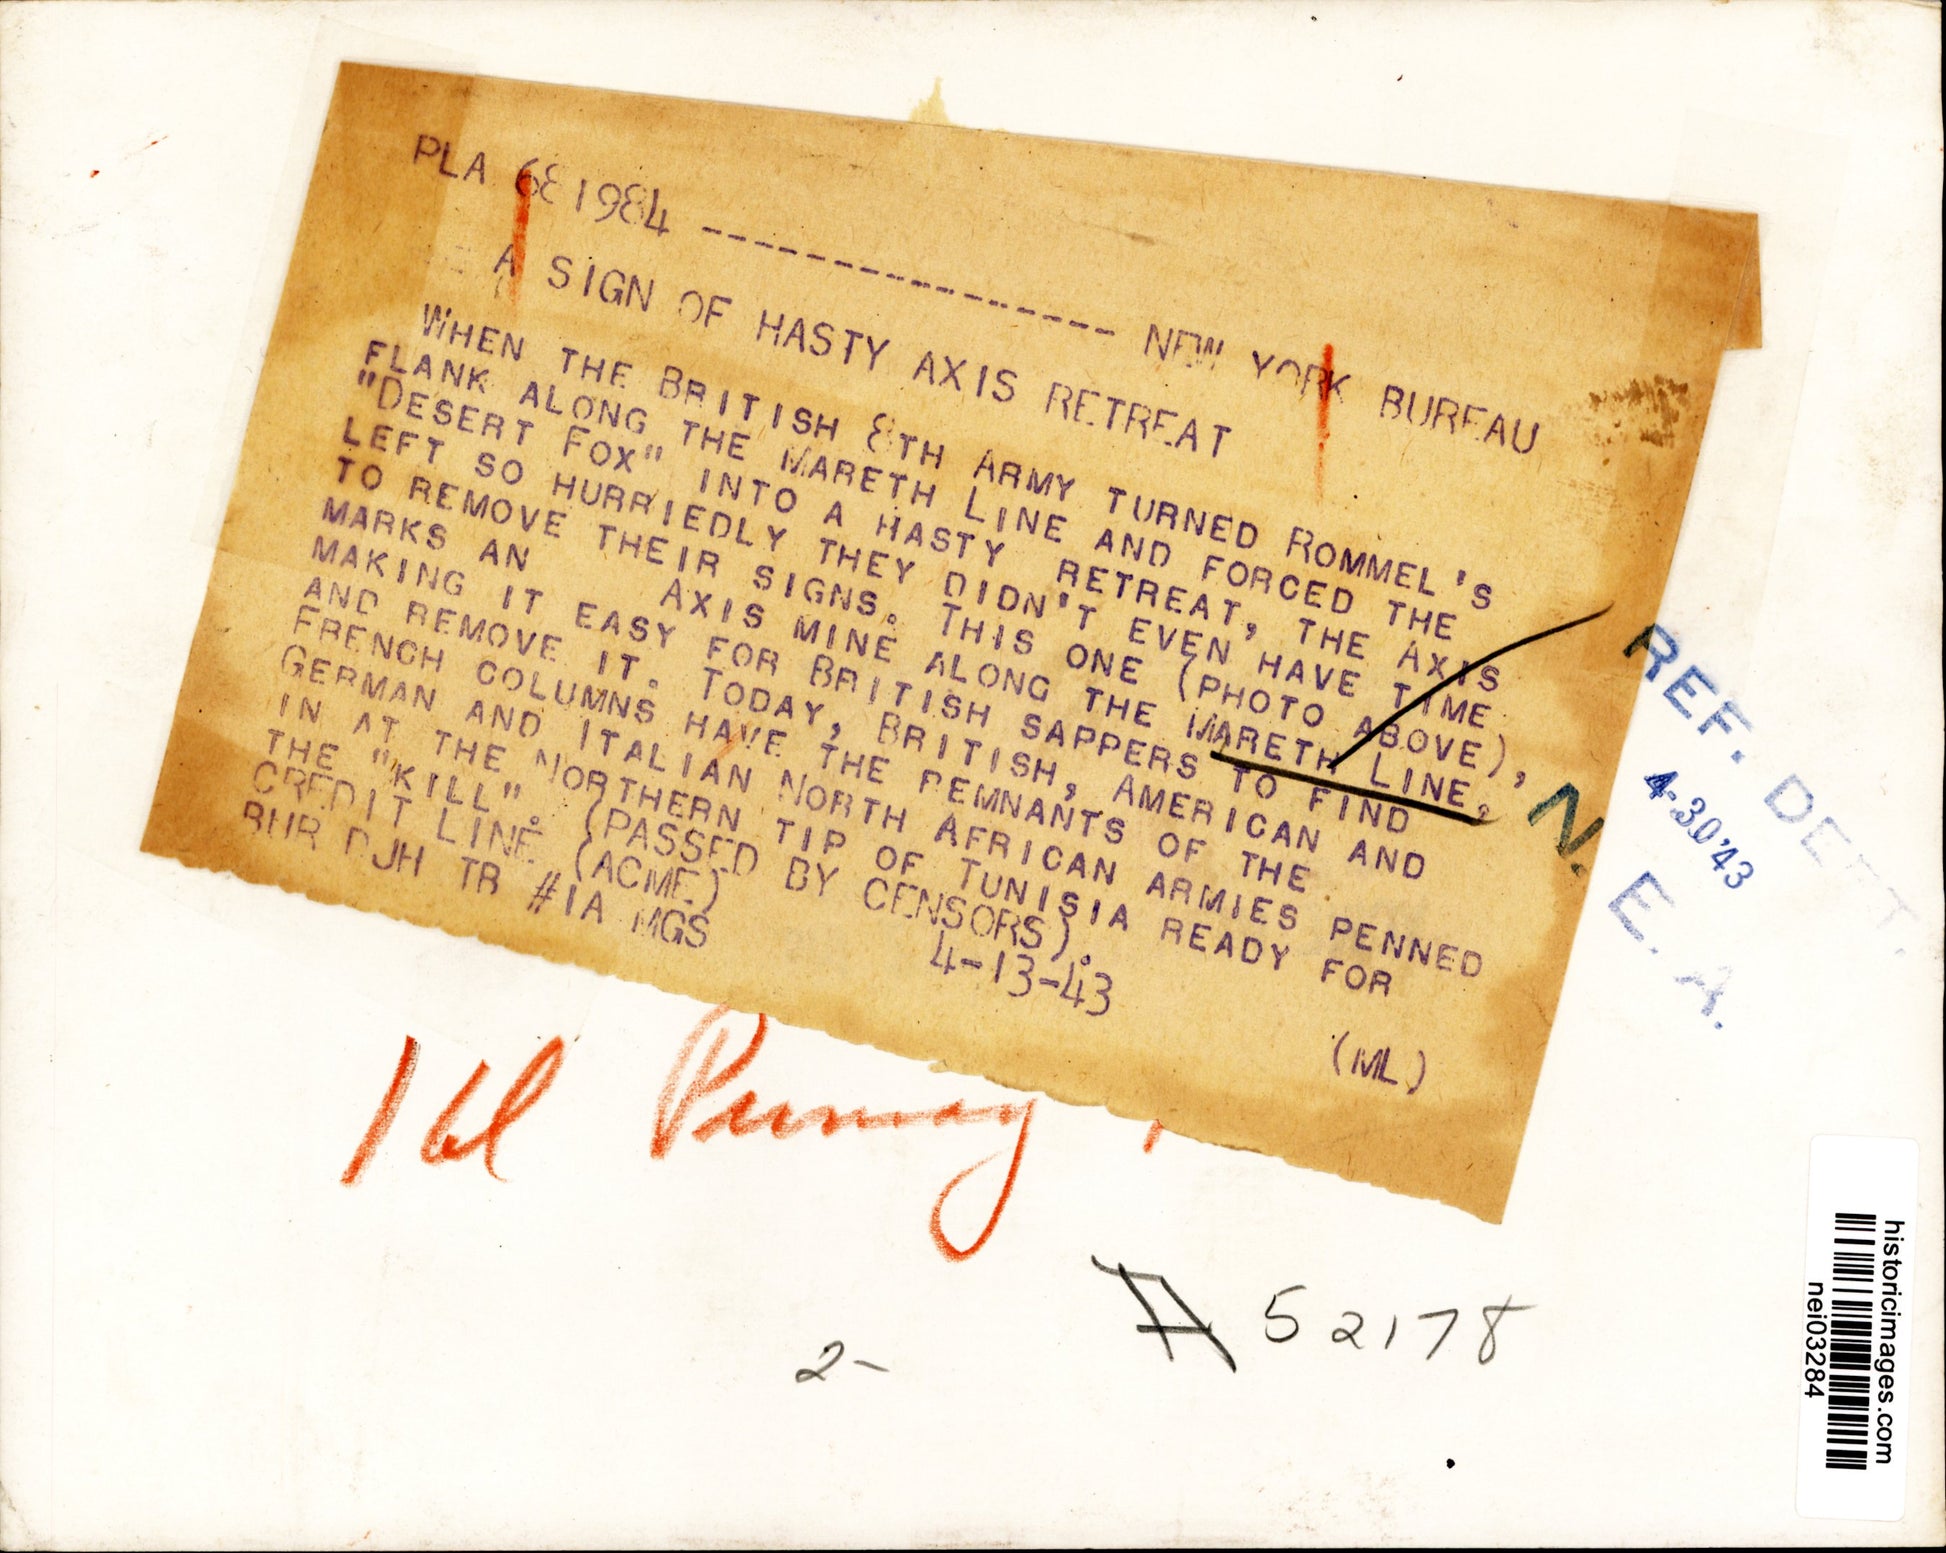 PLA 681984 ----------------- NEW YORK BUREAU
A SIGN OF HASTY AXIS RETREAT
WHEN THE BRITISH 8TH ARMY TURNED ROMMEL'S
FLANK ALONG THE MARETH LINE AND FORCED THE
"DESERT FOX" INTO A HASTY RETREAT, THE AXIS
LEFT SO HURRIEDLY THEY DIDN'T EVEN HAVE TIME
TO REMOVE THEIR SIGNS. THIS ONE (PHOTO ABOVE),
MARKS AN AXIS MINE ALONG THE MARETH LINE,
MAKING IT EASY FOR BRITISH SAPPERS TO FIND
AND REMOVE IT. TODAY, BRITISH, AMERICAN AND
FRENCH COLUMNS HAVE THE REMNANTS OF THE
GERMAN AND ITALIAN NORTH AFRICAN ARMIES PENNED
IN AT THE NORTHERN TIP OF TUNISIA READY FOR
THE "KILL". (PASSED BY CENSORS).
CREDIT LINE (ACME) 4-13-43
BUR DJH TR #1A MGS (ML)
REF. DEPT.
4-30'43
N. E. A.
52178
2-
historicimages.com
nei03284